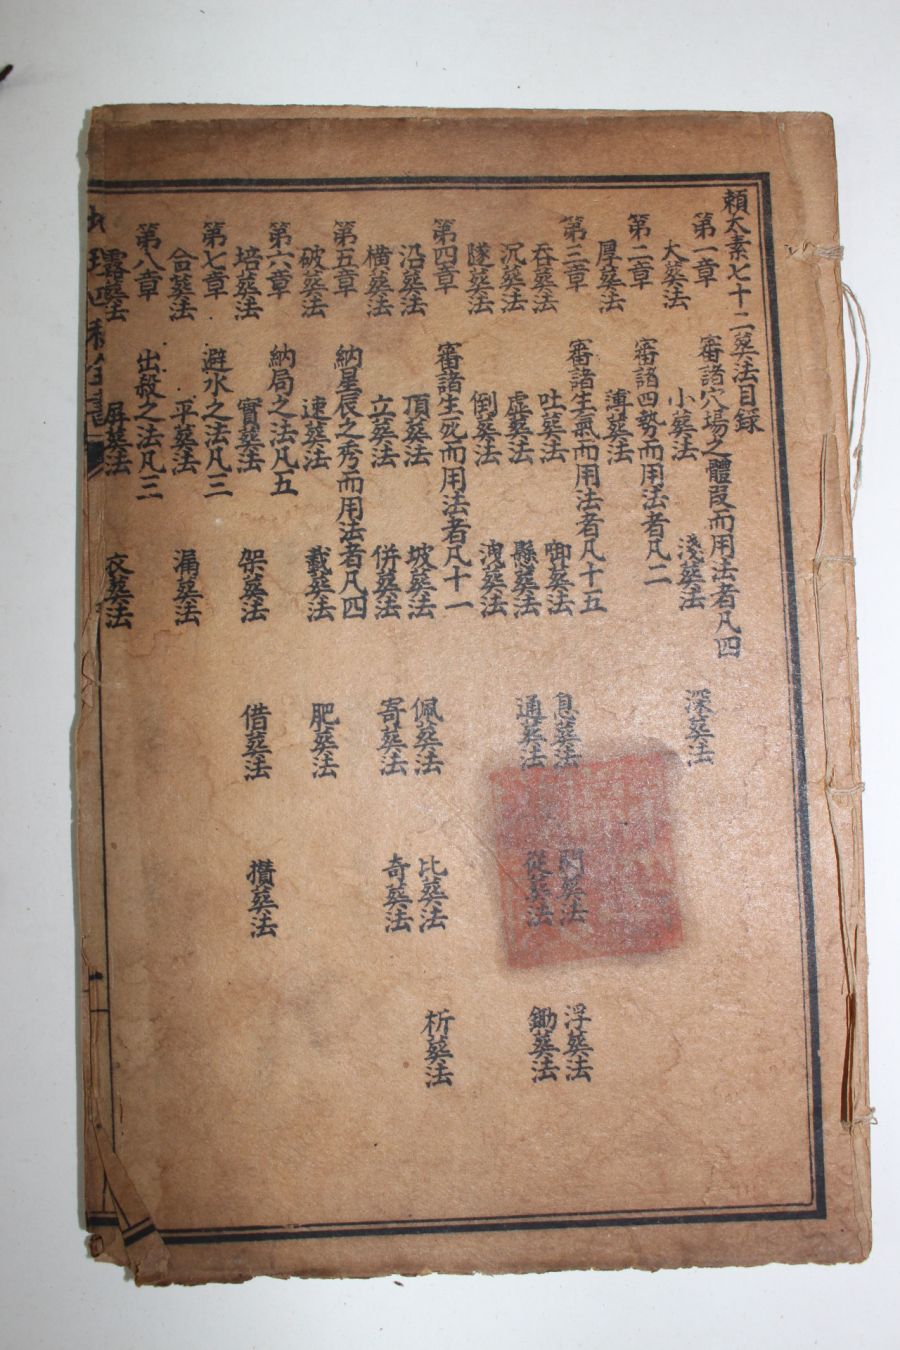 賴太素七十二葬法目録
第一章 審諸穴塲之體叚而用法者凡四
大葬法 小葬法 淺葬法 深葬法
第二章 審諸四勢而用法者凡二
厚葬法 薄葬法
第三章 審諸生氣而用法者凡十五
吞葬法 吐葬法 啣葬法 息葬法 葬法 浮葬法
沉葬法 虚葬法 懸葬法 通葬法 從葬法 鋤葬法
墜葬法 倒葬法 洩葬法
第四章 審諸生死而用法者凡十一
沿葬法 頂葬法 坡葬法 佩葬法 比葬法 析葬法
橫葬法 立葬法 併葬法 寄葬法 奇葬法
第五章 納星辰之秀而用法者凡四
破葬法 速葬法 截葬法 肥葬法
第六章 納局之法凡五
培葬法 實葬法 架葬法 借葬法 攢葬法
第七章 避水之法凡三
合葬法 平葬法 漏葬法
第八章 出殺之法凡三
露葬法 屏葬法 衣葬法